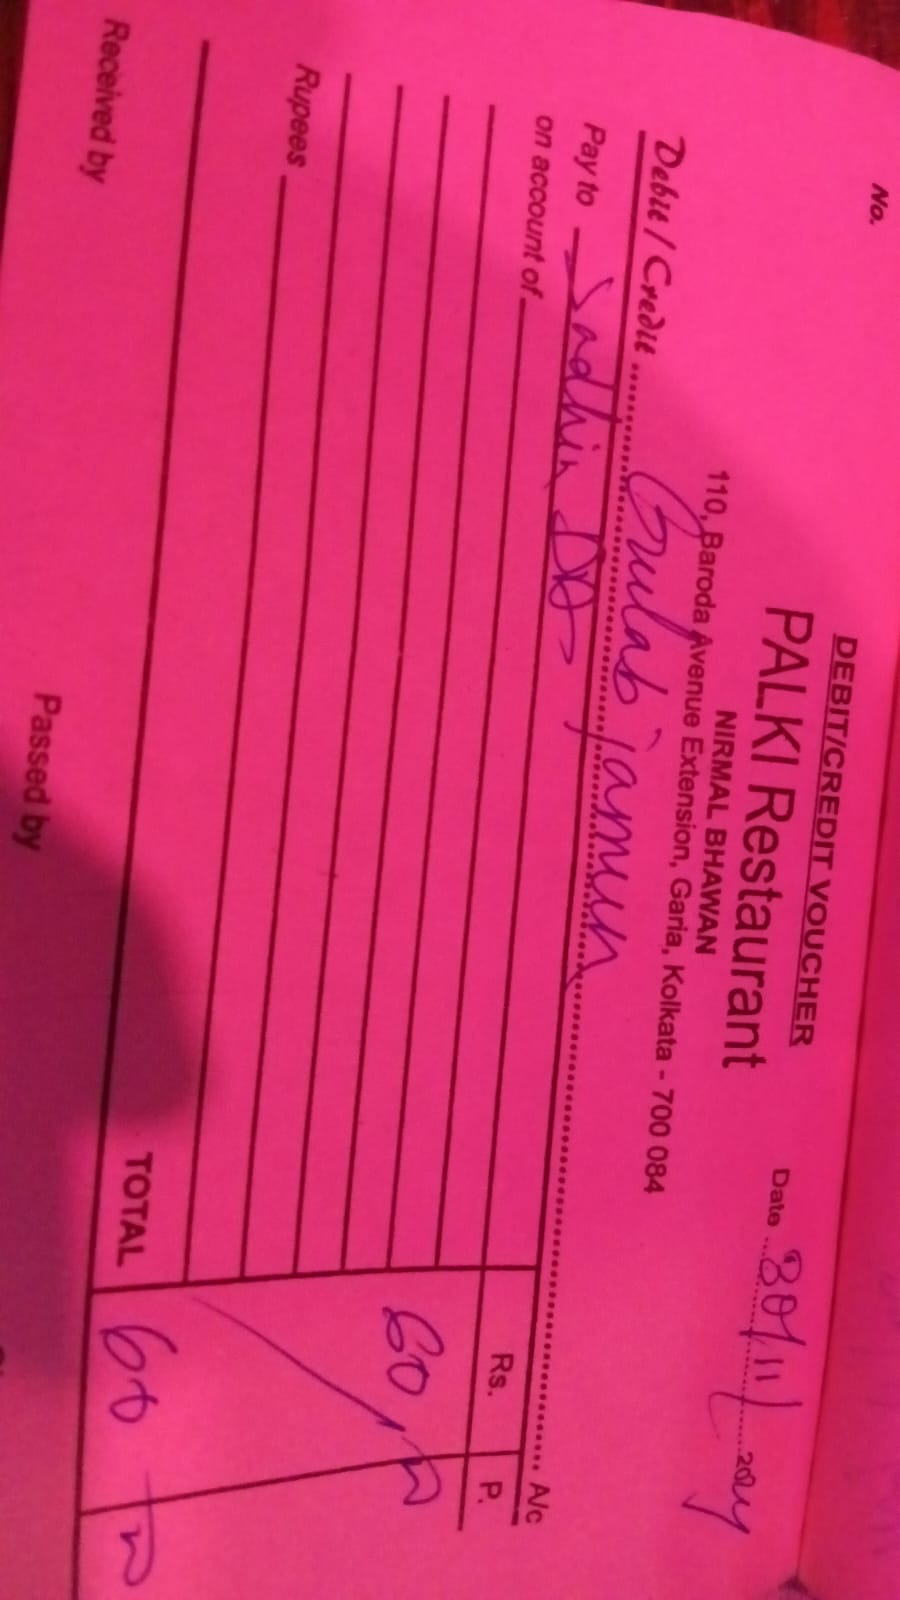 DEBIT/CREDIT VOUCHER
No.
PALKI Restaurant
NIRMAL BHAWAN
110, Baroda Avenue Extension, Garia, Kolkata - 700 084
Date 30/11/2024
Debit / Credit Gulab jamun A/c
Pay to Sadhin DA
on account of
Rs. P.
60/-
Rupees
TOTAL 60/-
Received by
Passed by